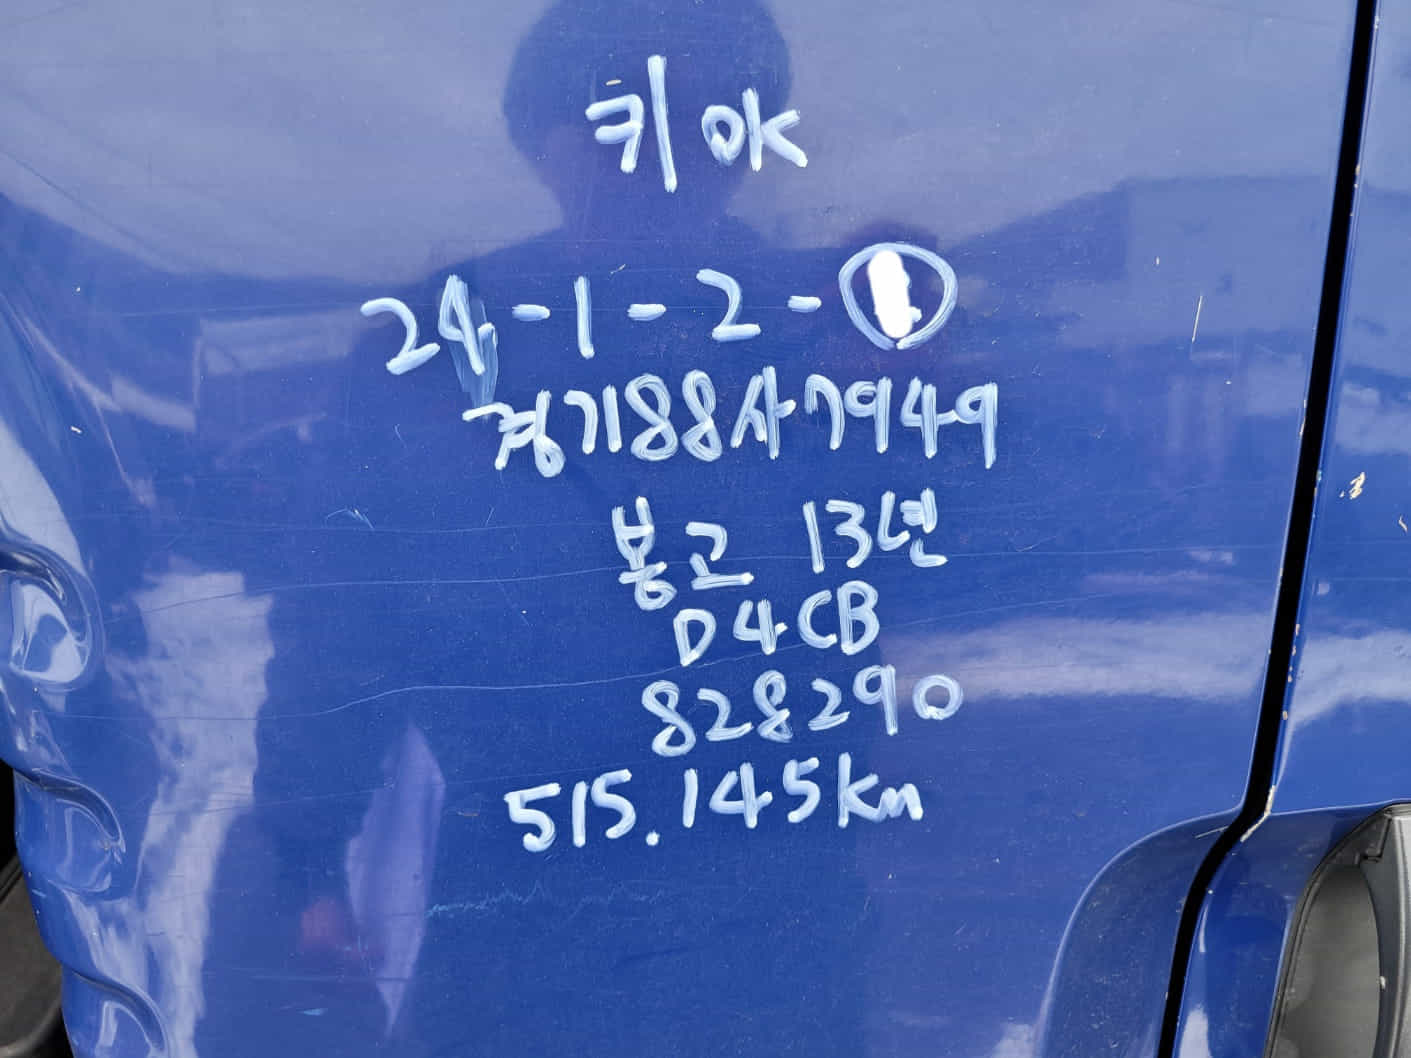 키 OK
24-1-2-
경기88사7949
봉고 13년
D4CB
828290
515.145km